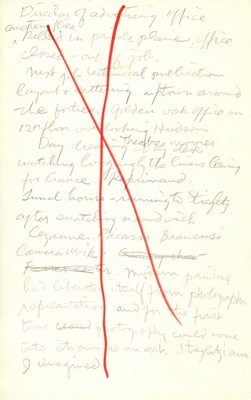 Director of advertising office
another files
killed in private plane, office
closed - out of job.
Next job technical publications
layout & lettering uptown around
the forties. Golden oak office on
12th floor overlooking Hudson
Day dreaming Theatres movies
watching long the liners leaving
for France. Reprimand.
Lunch hour - running to Stieglitz
after snatching a sandwich.
Cezanne Picasso Brancusi
Camera Work -
modern painting
had liberated itself from photographic
representation and for the first
time photography could come
into its own as an art. Stieglitz
I imagined